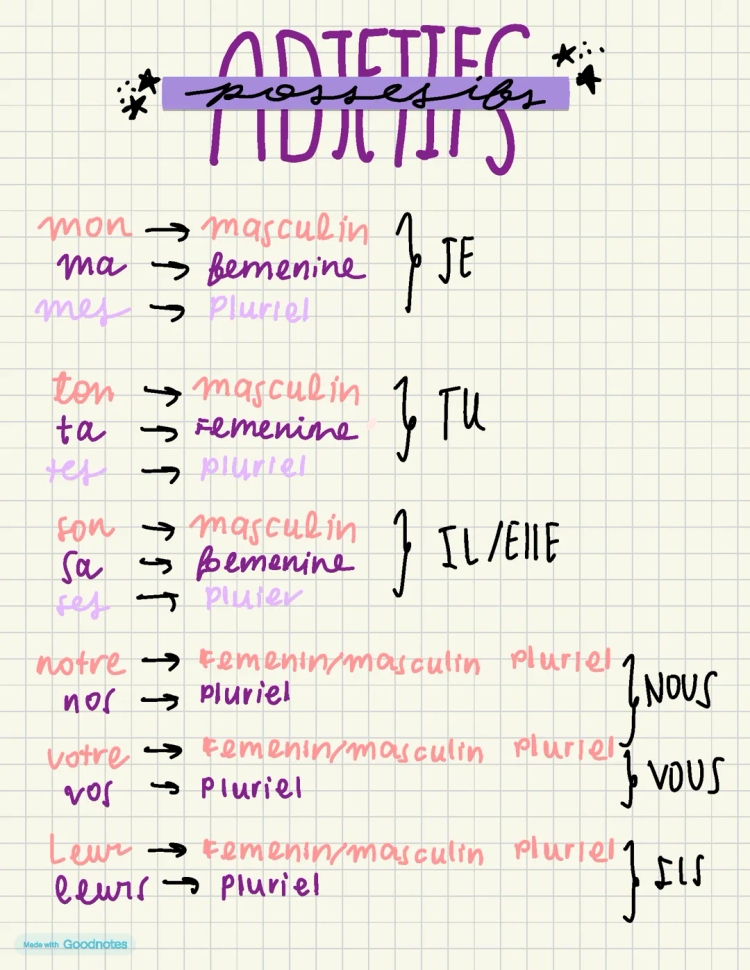 ADJETIFS
possesifs
mon → masculin
ma → femenine
mes → pluriel
JE
ton → masculin
ta → Femenine
tes → pluriel
TU
son → masculin
sa → femenine
ses → pluier
IL/EllE
notre → Femenin/masculin pluriel
nos → pluriel
NOUS
votre → Femenin/masculin pluriel
vos → pluriel
VOUS
Leur → Femenin/masculin pluriel
leurs → pluriel
Ils
Made with Goodnotes